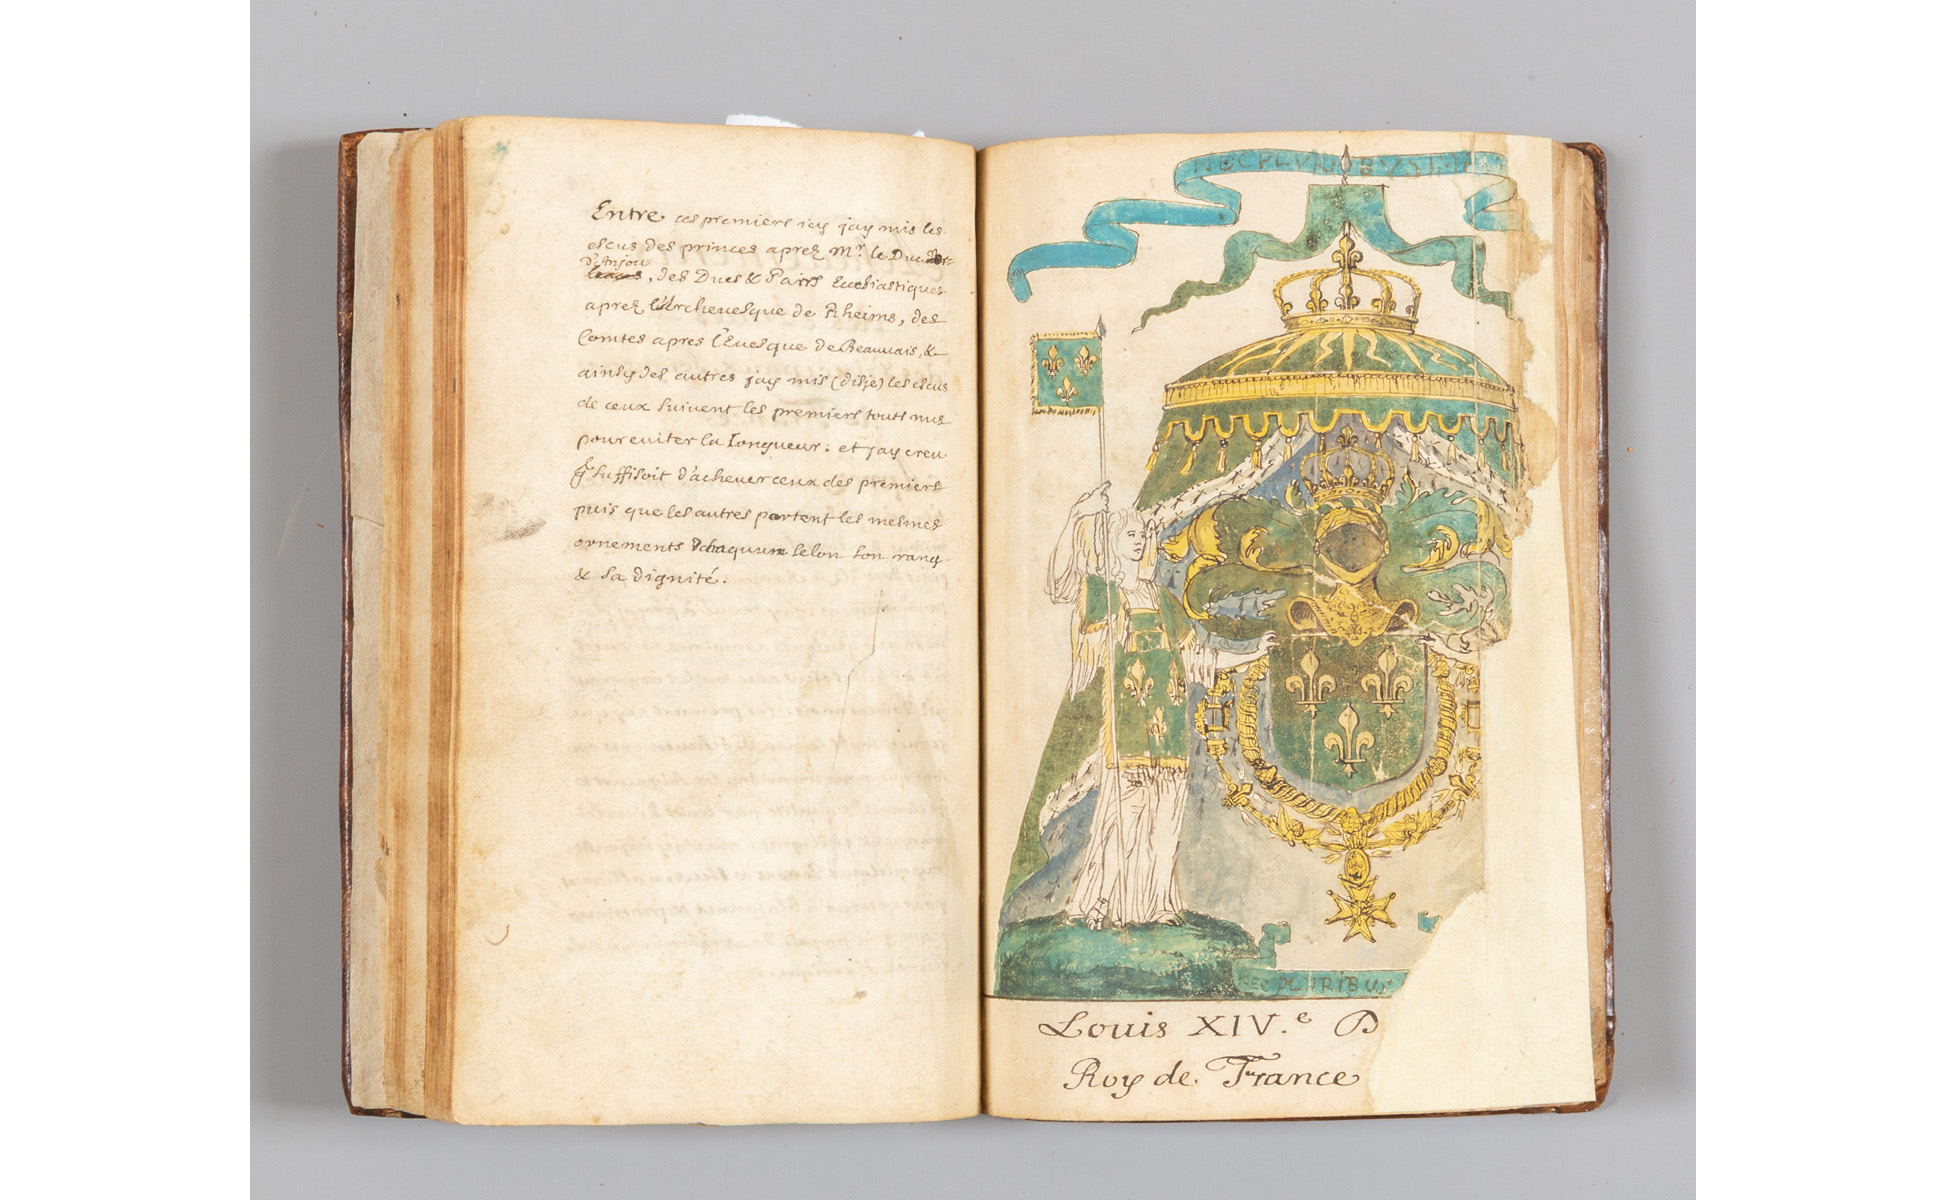 Entre ces premiers icy jay mis les
escus des princes apres Mr. le Duc
d'Anjou
, des Ducs & Pairs Eccliastiques
apres l'Archevesque de Rheims, des
Comtes apres l'Evesque de Beauvais, &
ainsy des autres jay mis (disje) les escus
de ceux suivent les premiers touts nus
pour eviter la longueur: et jay creu
q suffisoit d'achever ceux des premiers
puis que les autres portent les mesmes
ornements chaquun selon son rang
& sa dignité.
NEC PLURIBUS IM
NEC PLURIBUS
Louis XIV.e D
Roy de France